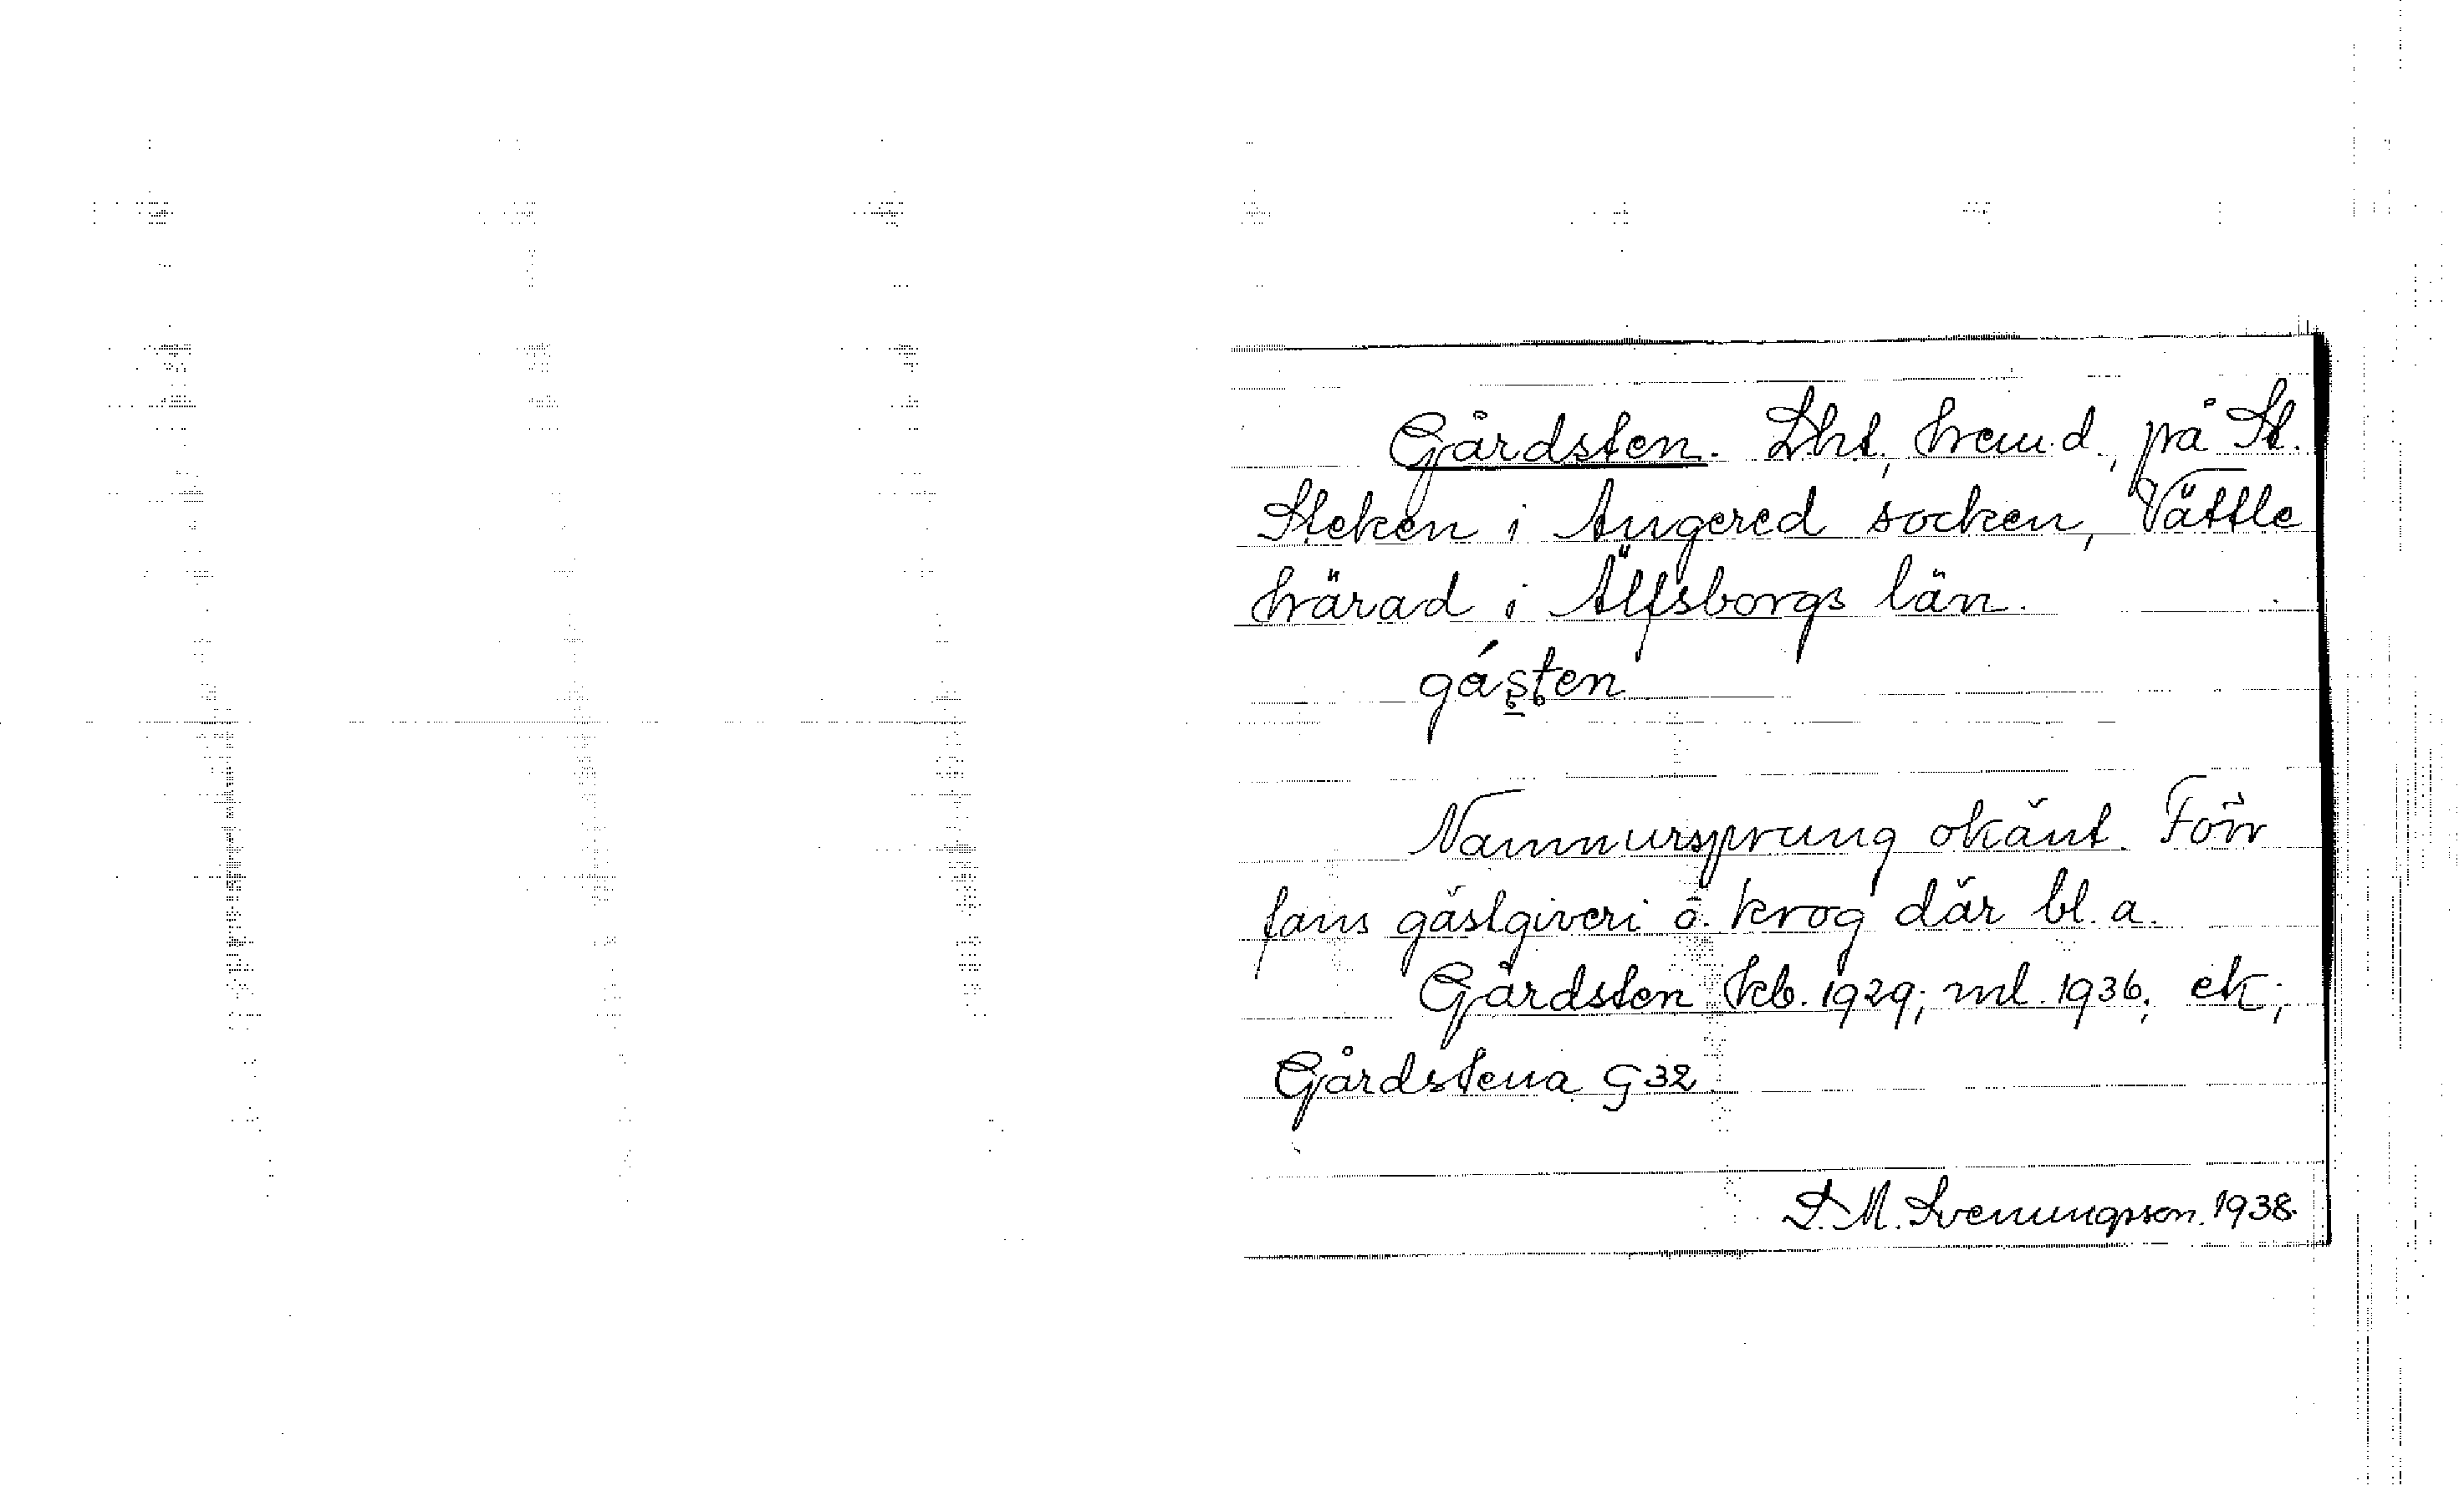 Gårdsten. Lht, hemd., på St.
Steken i Angered socken, Vättle
härad i Älfsborgs län.
gásten
Namnursprung okänt. Förr
fans gästgiveri o. krog där bl. a.
Gårdsten kb. 1929; ml. 1936, ek;
Gårdstena G32
D. M. Svenungsson. 1938.